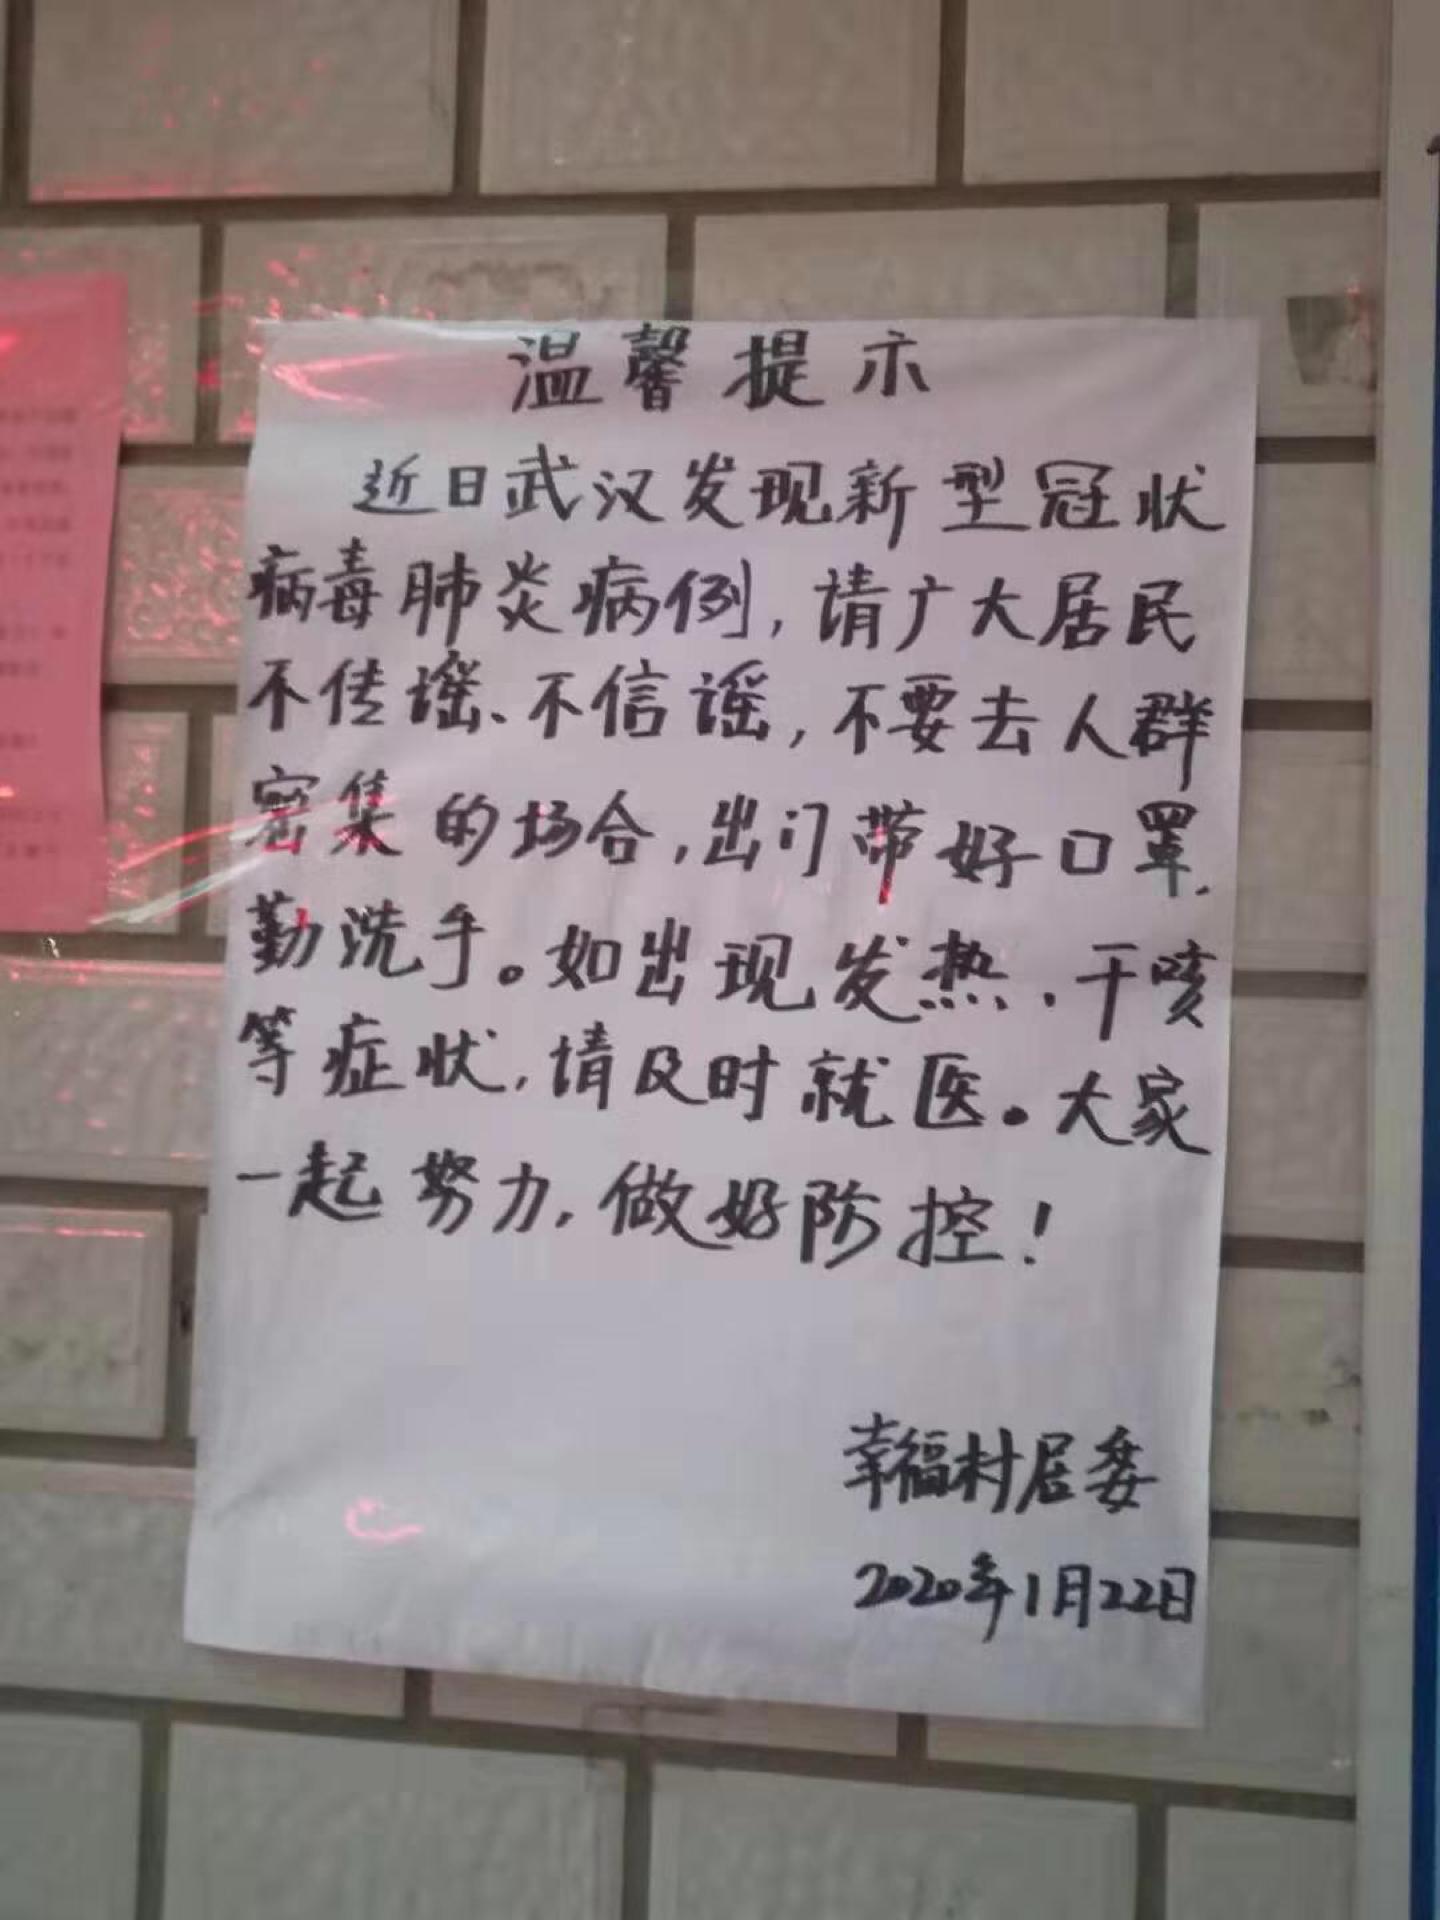 温馨提示
近日武汉发现新型冠状
病毒肺炎病例,请广大居民
不传谣、不信谣,不要去人群
密集的场合,出门带好口罩,
勤洗手。如出现发热、干咳
等症状,请及时就医。大家
一起努力,做好防控!
幸福村居委
2020年1月22日